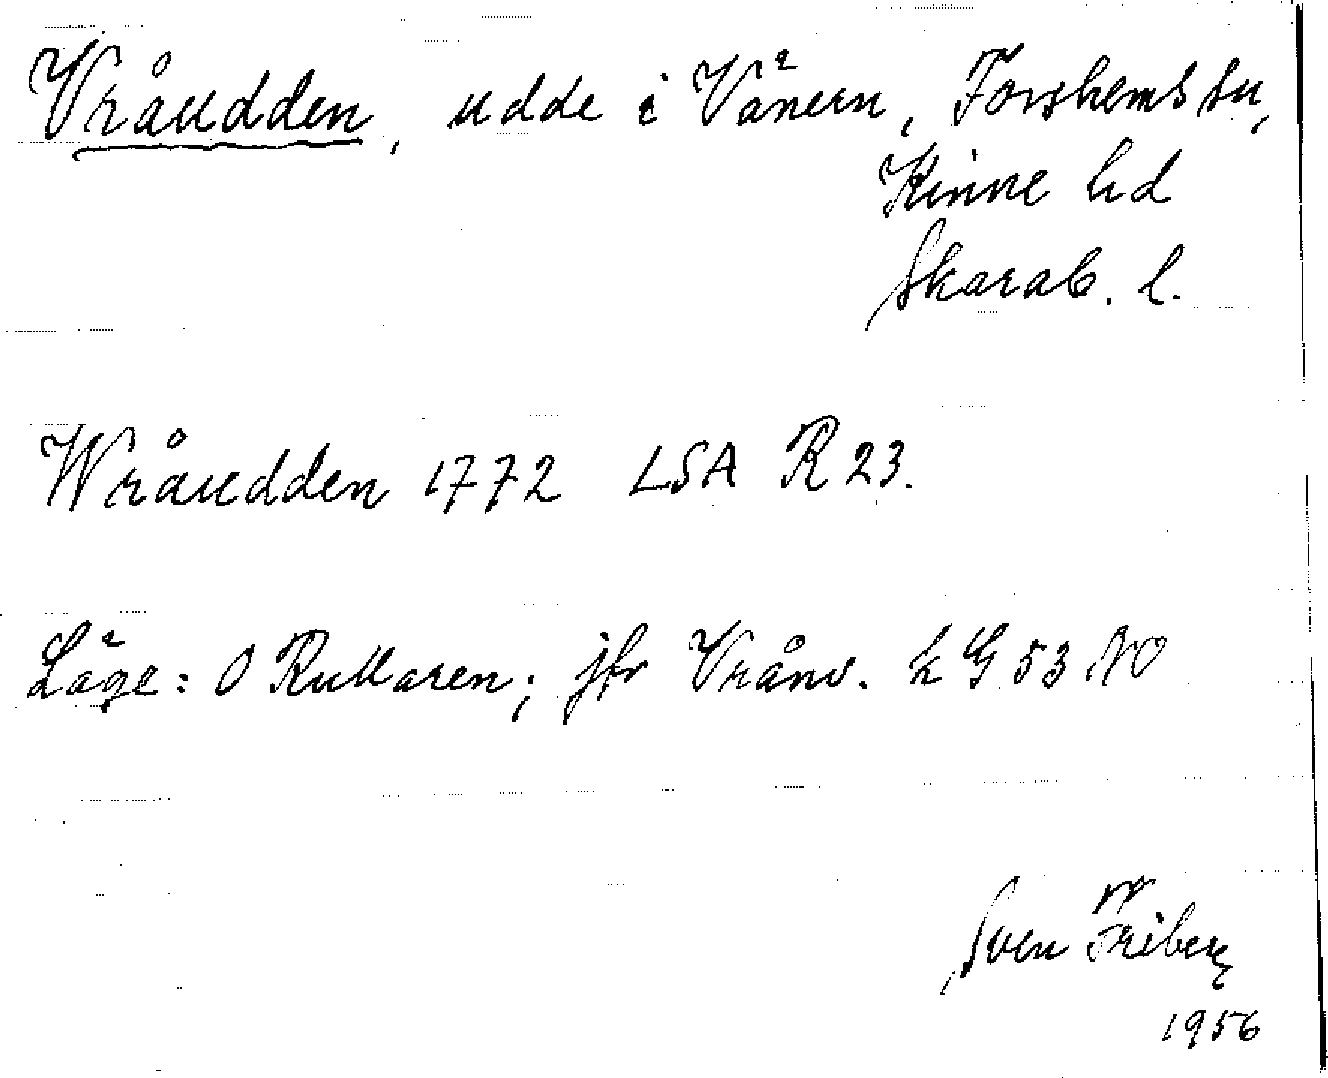 Vråudden, udde i Vänern, Forshems sn,
Kinne hd
Skarab. l.
Wråudden 1772 LSA R 23.
Läge: O Rullaren; jfr Vrånv. k G 53 NO
Sven Friberg
1956